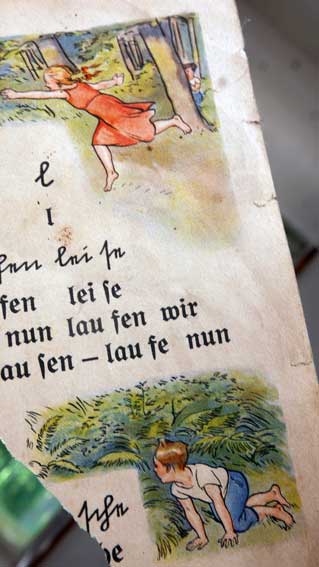 l
l
fen lei ſe
fen lei ſe
nun lau fen wir
au fen – lau fe nun
ſche